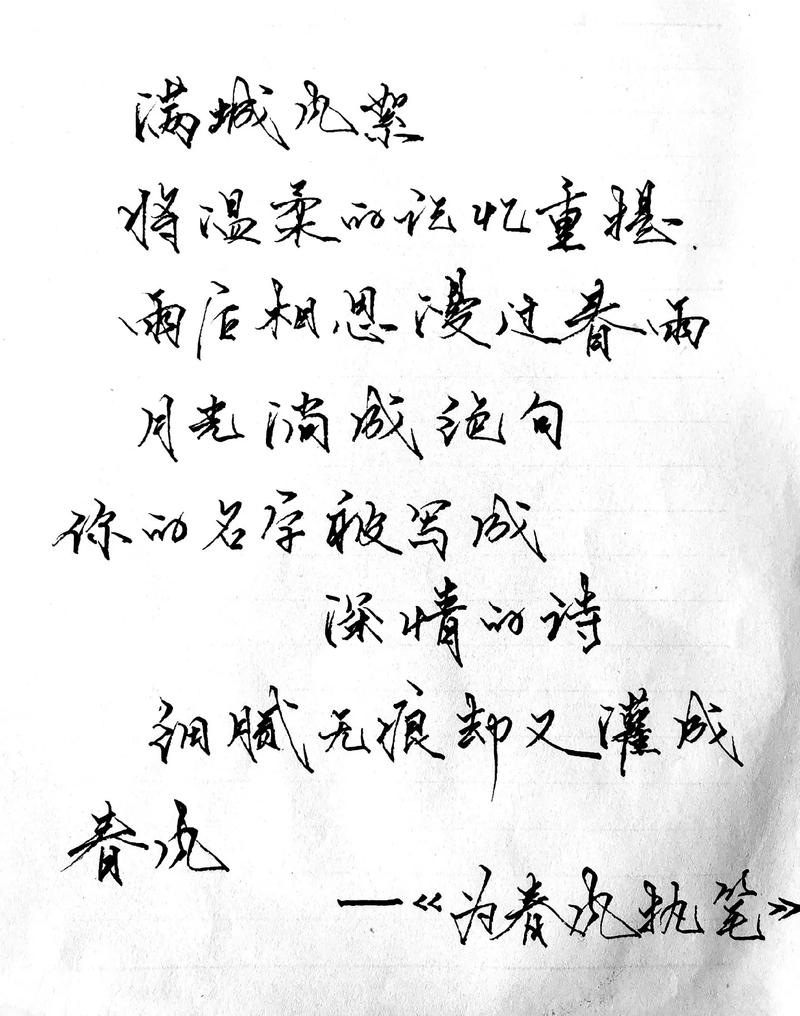 满城风絮
将温柔的记忆重提.
雨后相思漫过春雨
月光淌成绝句
你的名字被写成
深情的诗
细腻无痕却又灌成
春风
——《为春风执笔》